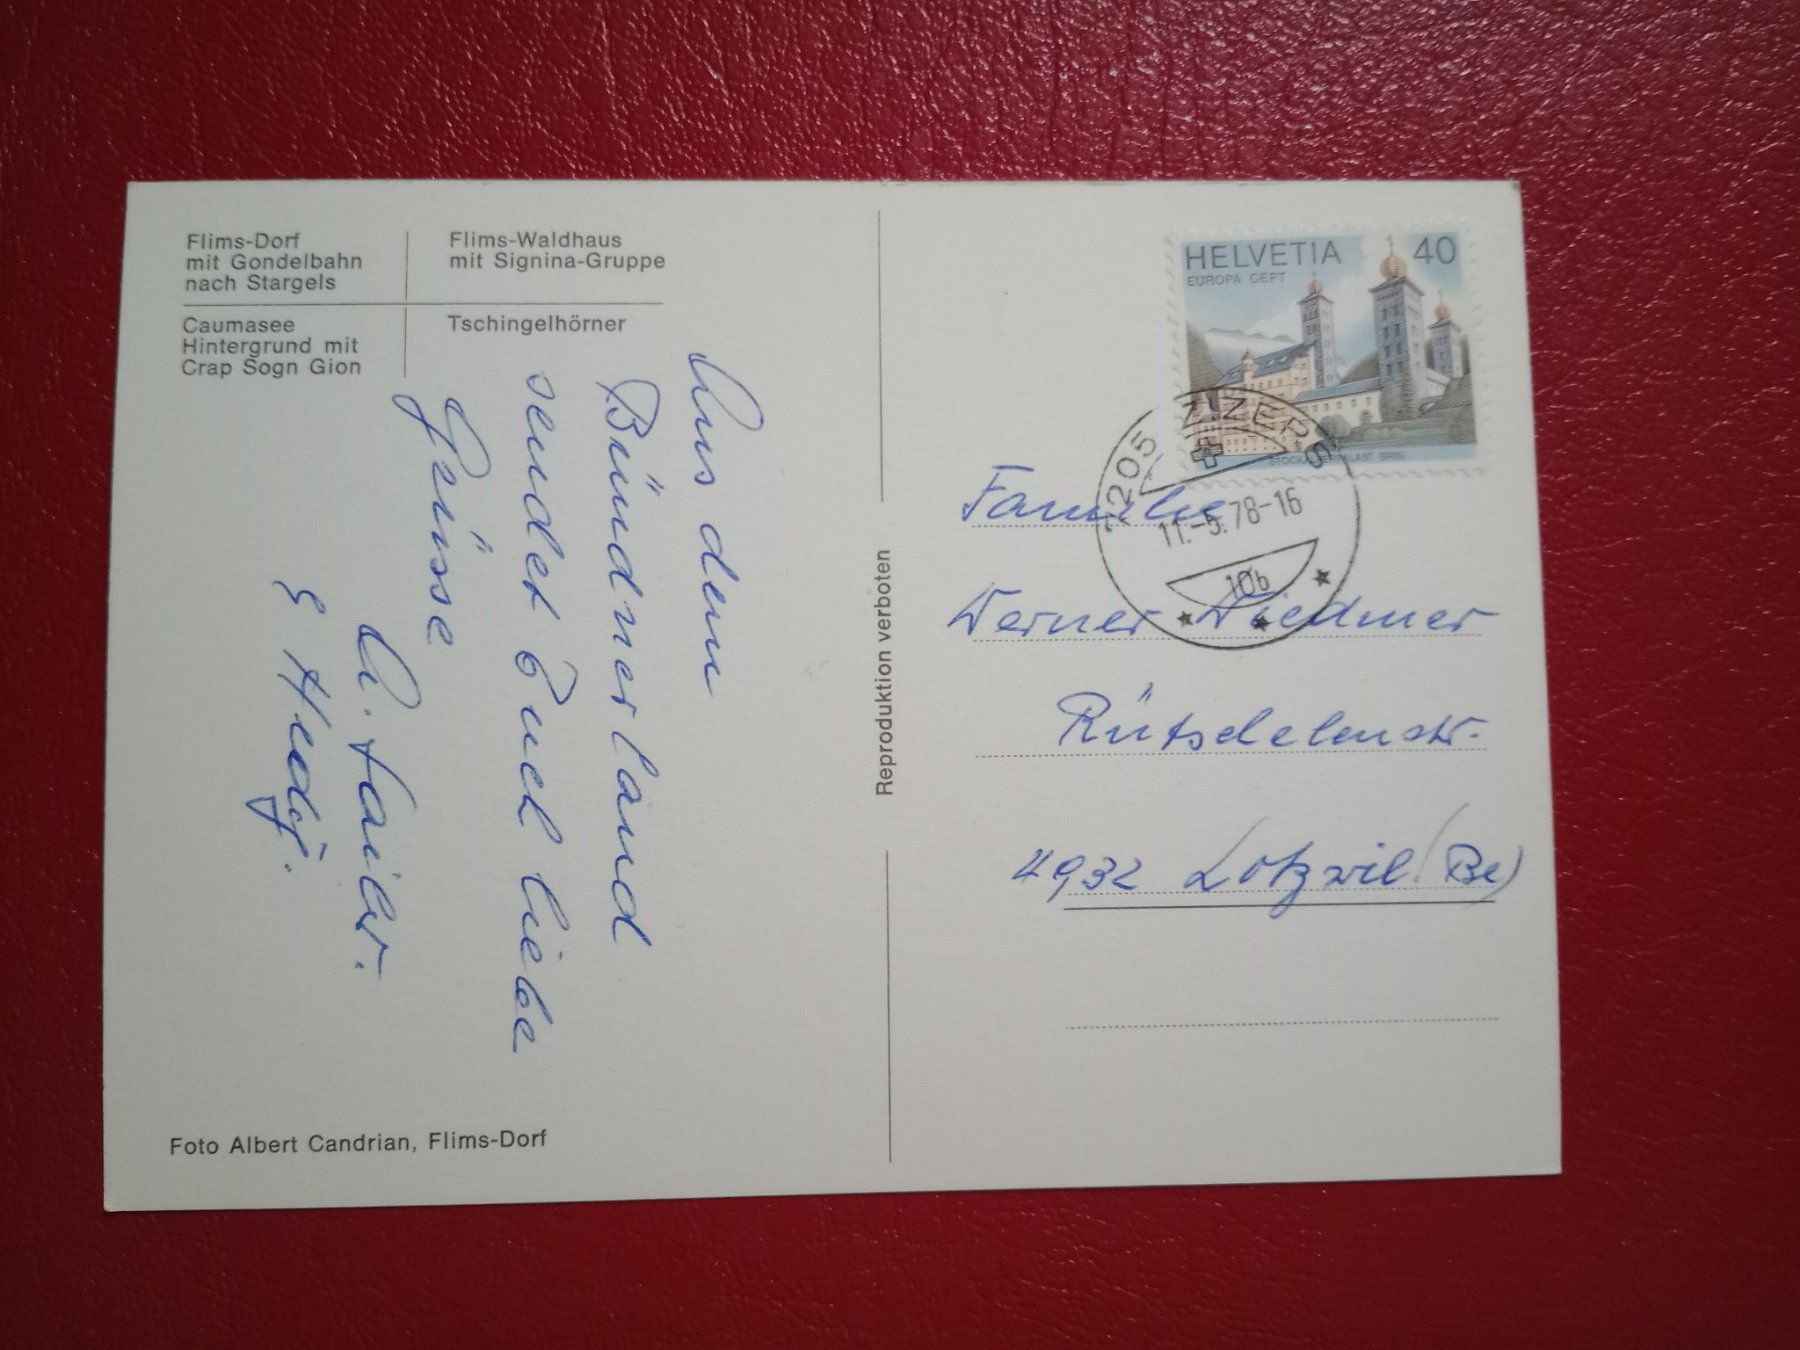 Flims-Dorf
mit Gondelbahn
nach Stargels
Flims-Waldhaus
mit Signina-Gruppe
Caumasee
Hintergrund mit
Crap Sogn Gion
Tschingelhörner
Aus dem
Bündnerland
sendet Euch liebe
Grüsse
Foto Albert Candrian, Flims-Dorf
Reproduktion verboten
HELVETIA 40
EUROPA CEPT
STOCKALPERPALAST BRIG
7205 ZIZERS
11.-5.78-16
10b
Familie
Werner Wiedmer
4932 Lotzwil (Be)